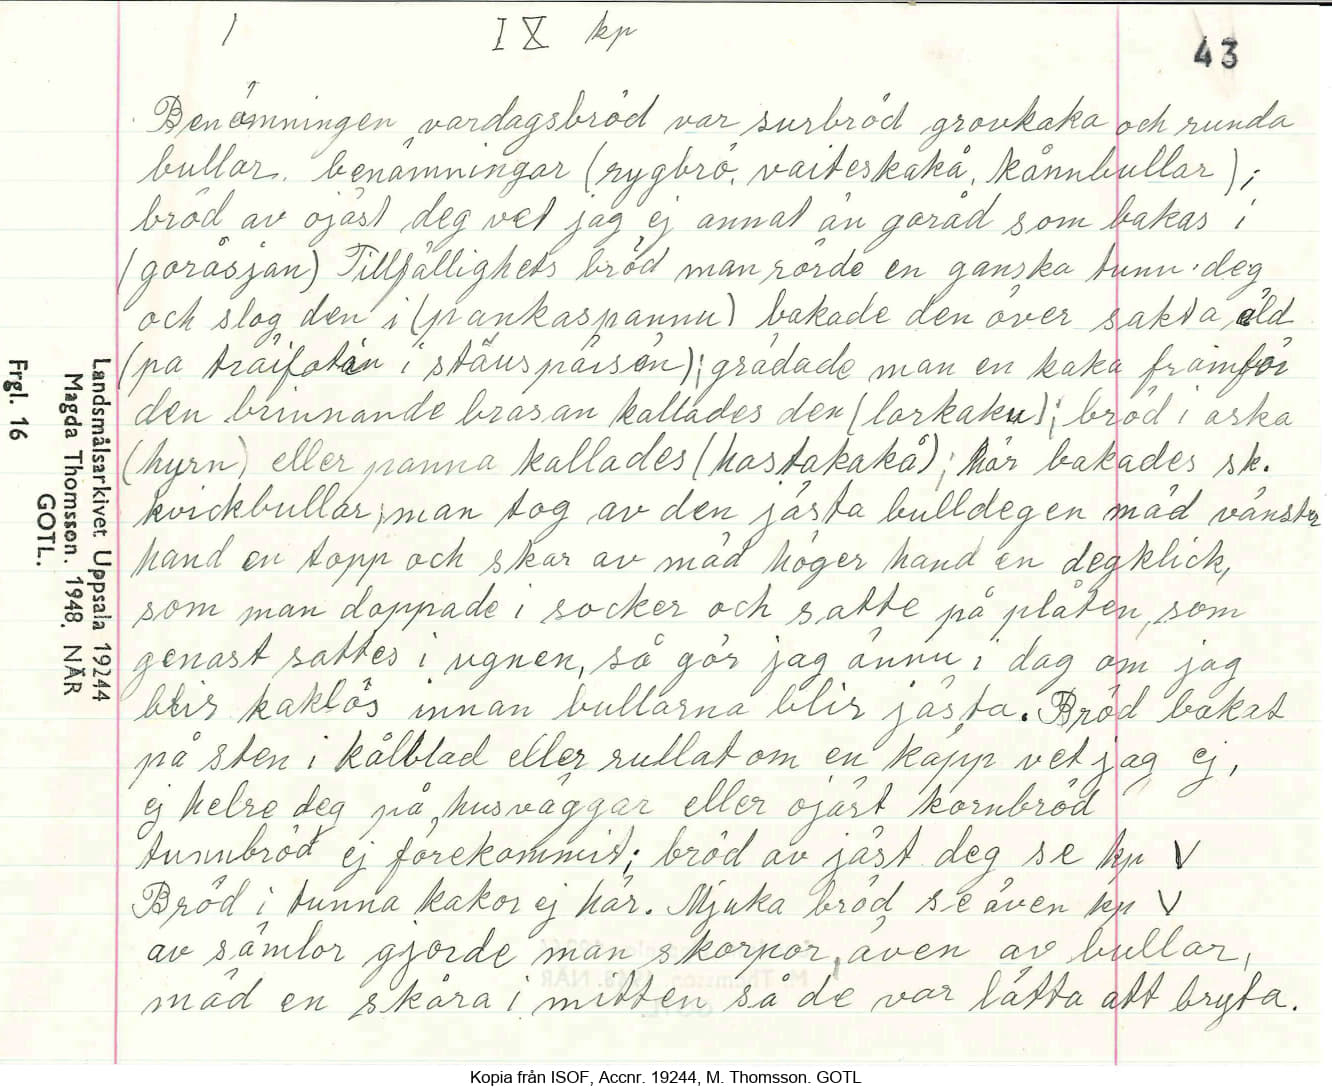 1 IX kp 43
Benämningen vardagsbröd var surbröd grovkaka och runda
bullar. benämningar (rygbrö, vaiteskakå, kånnbullar);
bröd av ojäst deg vet jag ej annat än goråd som bakas i
(goråsjan) Tillfällighets bröd man rörde en ganska tunn deg
och slog den i (pankaspannu) bakade den över sakta äld
(pa träifotän i stäuspäisen); grädade man en kaka framför
den brinnande brasan kallades den (lorkaku); bröd i aska
(hyrn) eller panna kallades (hastakakå); här bakades sk.
kvickbullar; man tog av den jästa bulldegen mäd vänster
hand en topp och skar av mäd höger hand en degklick,
som man doppade i socker och satte på plåten, som
genast sattes i ugnen, så gör jag ännu i dag om jag
blir kaklös innan bullarna blir jästa. Bröd bakat
på sten i kålblad eller rullat om en käpp vet jag ej,
ej helre deg på husväggar eller ojäst kornbröd
tunnbröd ej förekommit; bröd av jäst deg se kp V
Bröd i tunna kakor ej här. Mjuka bröd se även kp V
av sämlor gjorde man skorpor, även av bullar,
mäd en skåra i mitten så de var lätta att bryta.
Landsmålsarkivet Uppsala 19244
Magda Thomsson. 1948. NÄR
GOTL.
Frgl. 16
Kopia från ISOF, Accnr. 19244, M. Thomsson. GOTL